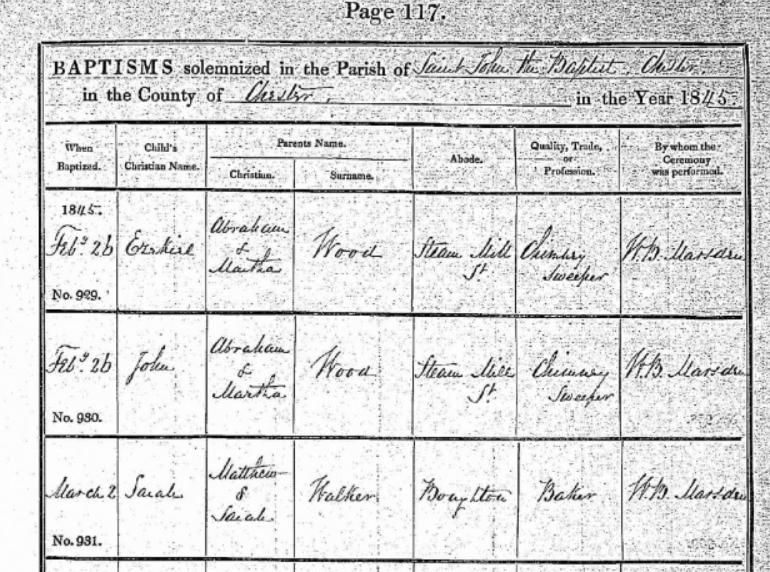 Page 117.
BAPTISMS solemnized in the Parish of Saint John the Baptist, Chester.
in the County of Chester, in the Year 1845.
When Baptized. Child's Christian Name. Parents Name. Christian. Surname. Abode. Quality, Trade, or Profession. By whom the Ceremony was performed.
1845.
Feby 26 Ezekiel Abraham & Martha Wood Steam Mill St Chimney Sweeper W.B. Marsden
No. 929.
Feby 26 John Abraham & Martha Wood Steam Mill St Chimney Sweeper W.B. Marsden
No. 930.
March 2 Sarah Matthew & Sarah Walker Boughton Baker W.B. Marsden
No. 931.